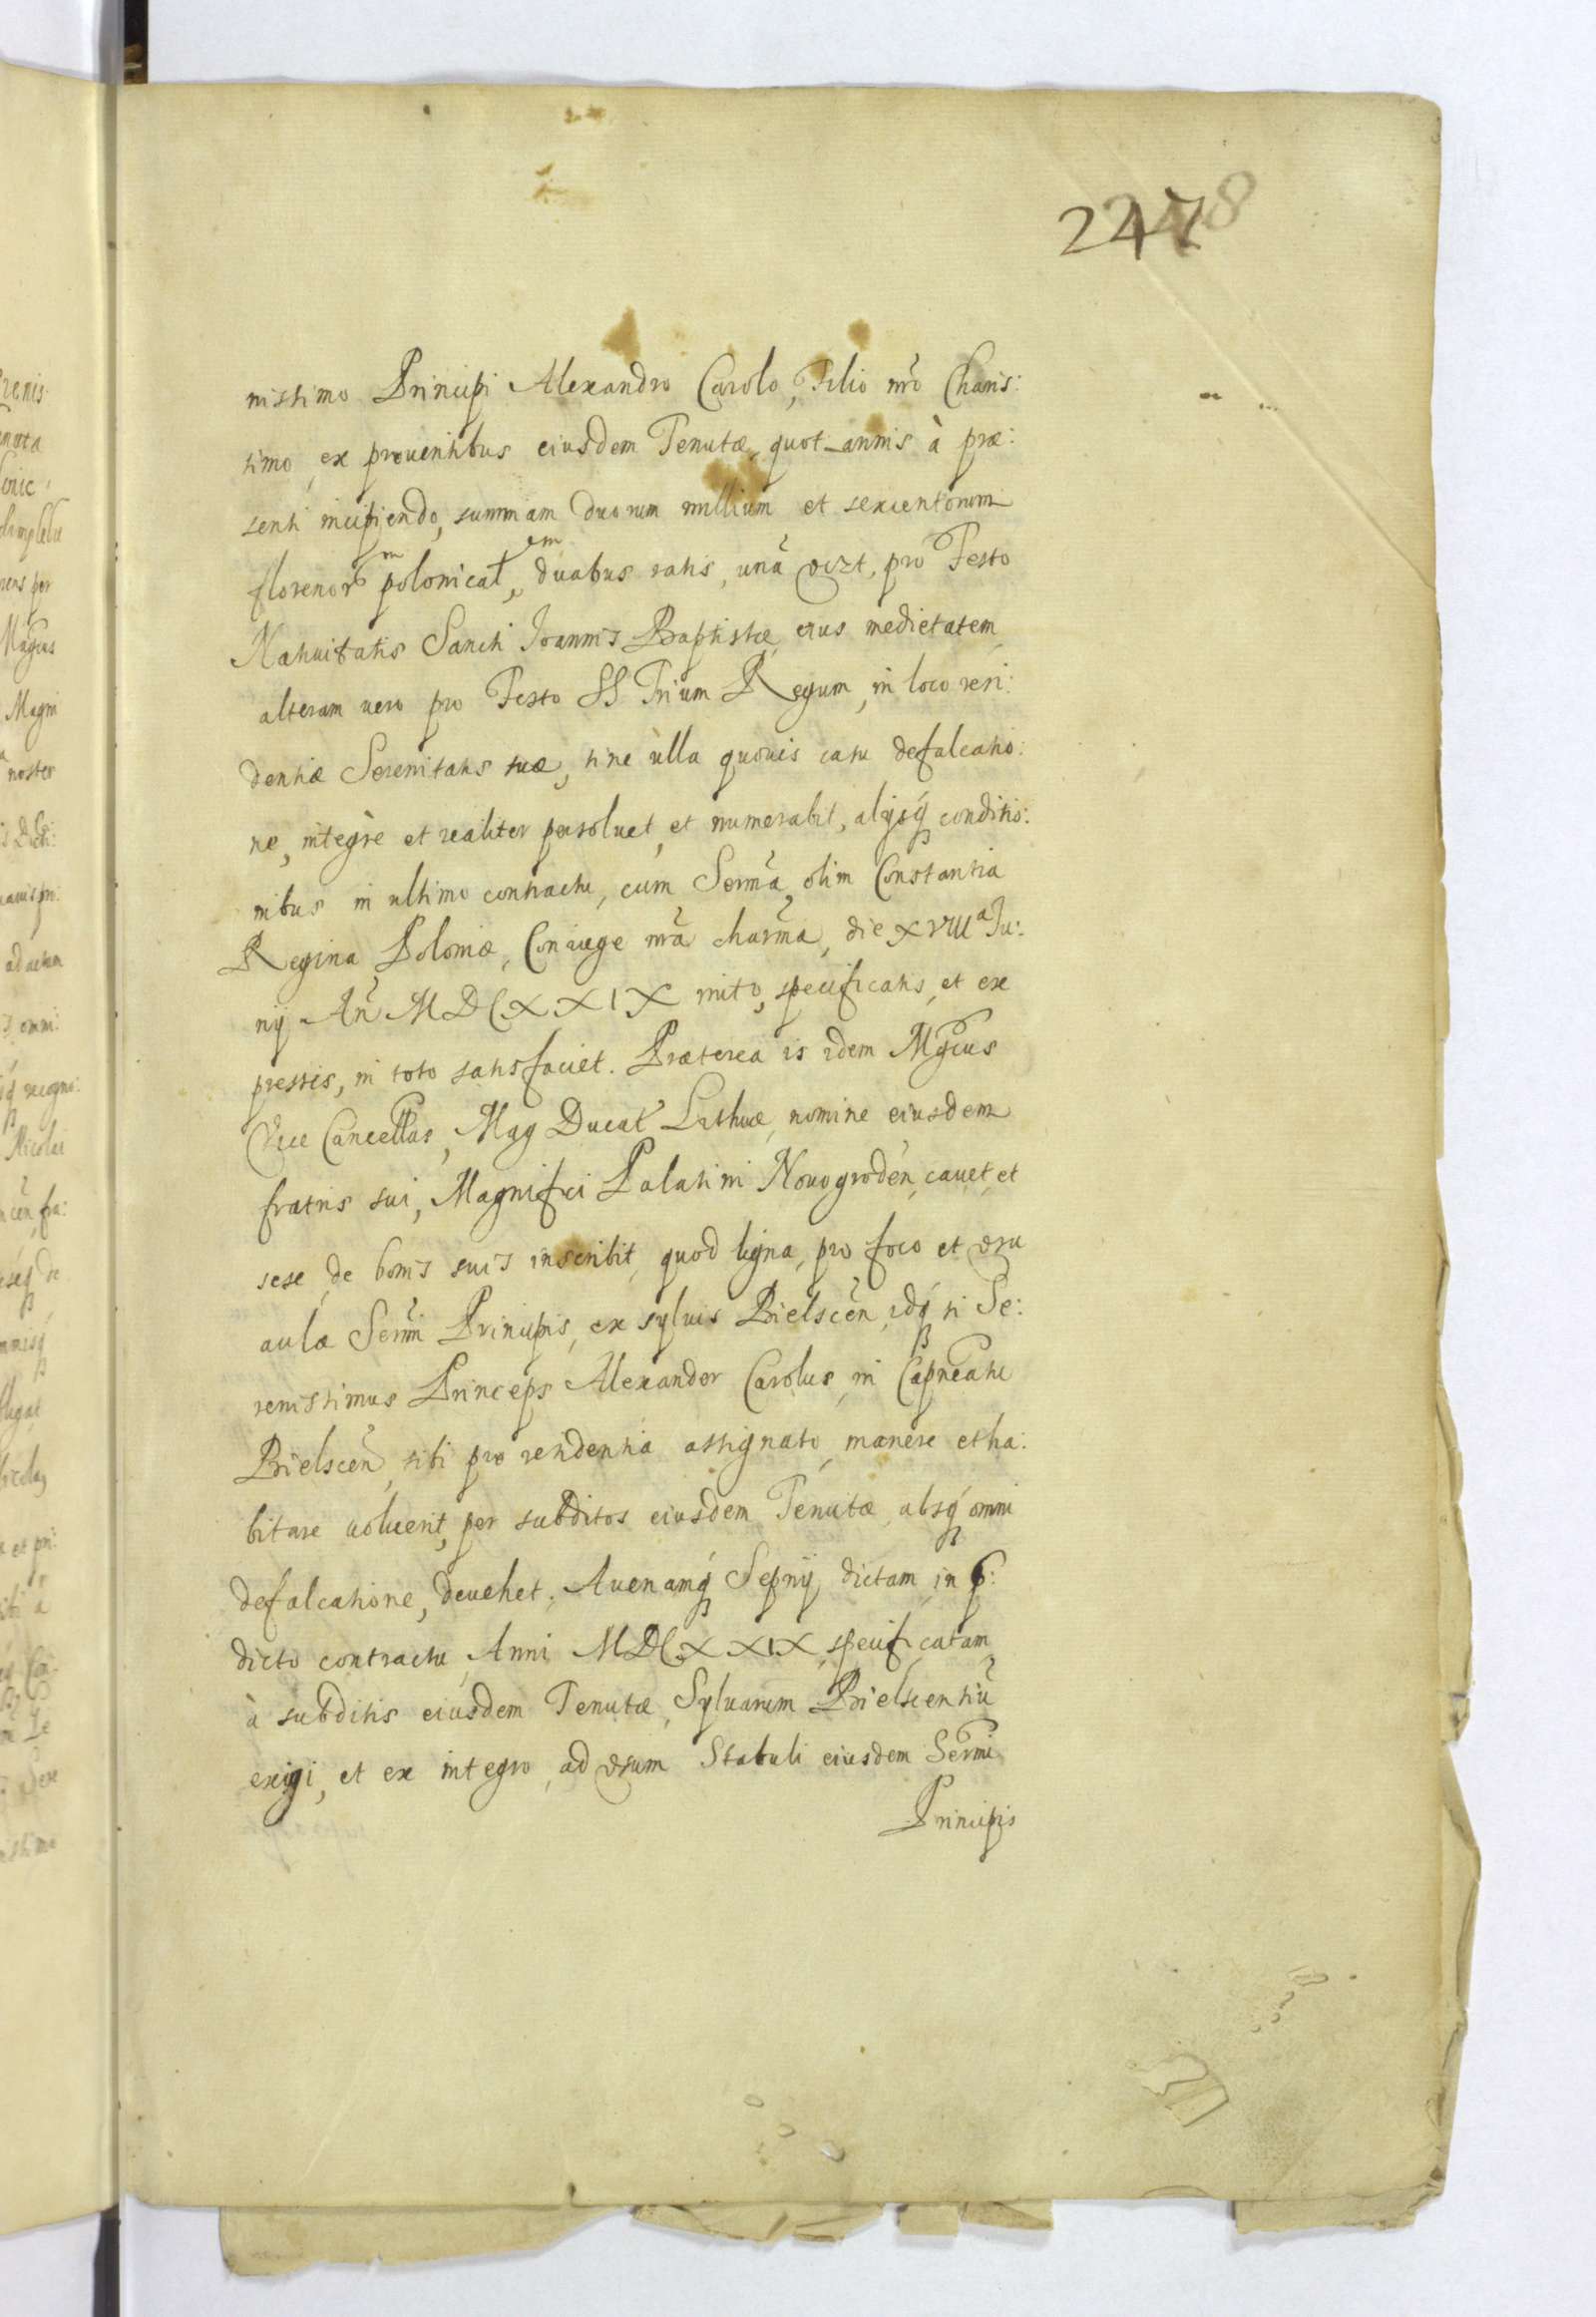 2247
8
nissimo Principi Alexandro Carolo, Filio nrõ Charis:
simo, ex prouentibus eiusdem Tenutæ, quot-annis à præ:
senti incipiendo, summam duorum millium et sexcentorum
florenorm polonicalem, duabus ratis, unã vizt, pro Festo
Natiuitatis Sancti Joannis Baptistæ, eius medietatem,
alteram uero pro Festo SS Trium Regum, in loco resi:
dentiæ Serenitatis suæ, sine ulla quouis casu defalcatio:
ne, integrè et realiter persoluet, et numerabit, alijsq́ conditio:
nibus in ultimo contractu, cum Sermã olim Constantia
Regina Poloniæ, Coniuge nrã charmã, die xviiia Ju:
nij Añ MDCXXIX inito, specificatis, et ex
pressis, in toto satisfaciet. Præterea is idem Mgcus
Vice Cancellrs, Mag Ducat Lithuæ, nomine eiusdem
fratris sui, Magnifici Palatini Nouogrodeñ, cauet, et
sese de bonis suis inscribit, quod ligna, pro foco et vsu
aulæ Sermi Principis, ex syluis Bielsceñ, idq́ si Se:
renissimus Princeps Alexander Carolus, in Capneatu
Bielsceñ, sibi pro residentia assignato, manere et ha:
bitare uoluerit, per subditos eiusdem Tenutæ, absq́ omni
defalcatione, deuehet. Auenamq́ Sepnÿ dictam, in p:
dicto contractu Anni MDCXXIX, specificatam,
à subditis eiusdem Tenutæ, Syluarum Bielscensiũ
exigi, et ex integro, ad vsum Stabuli eiusdem Sermi
Principis